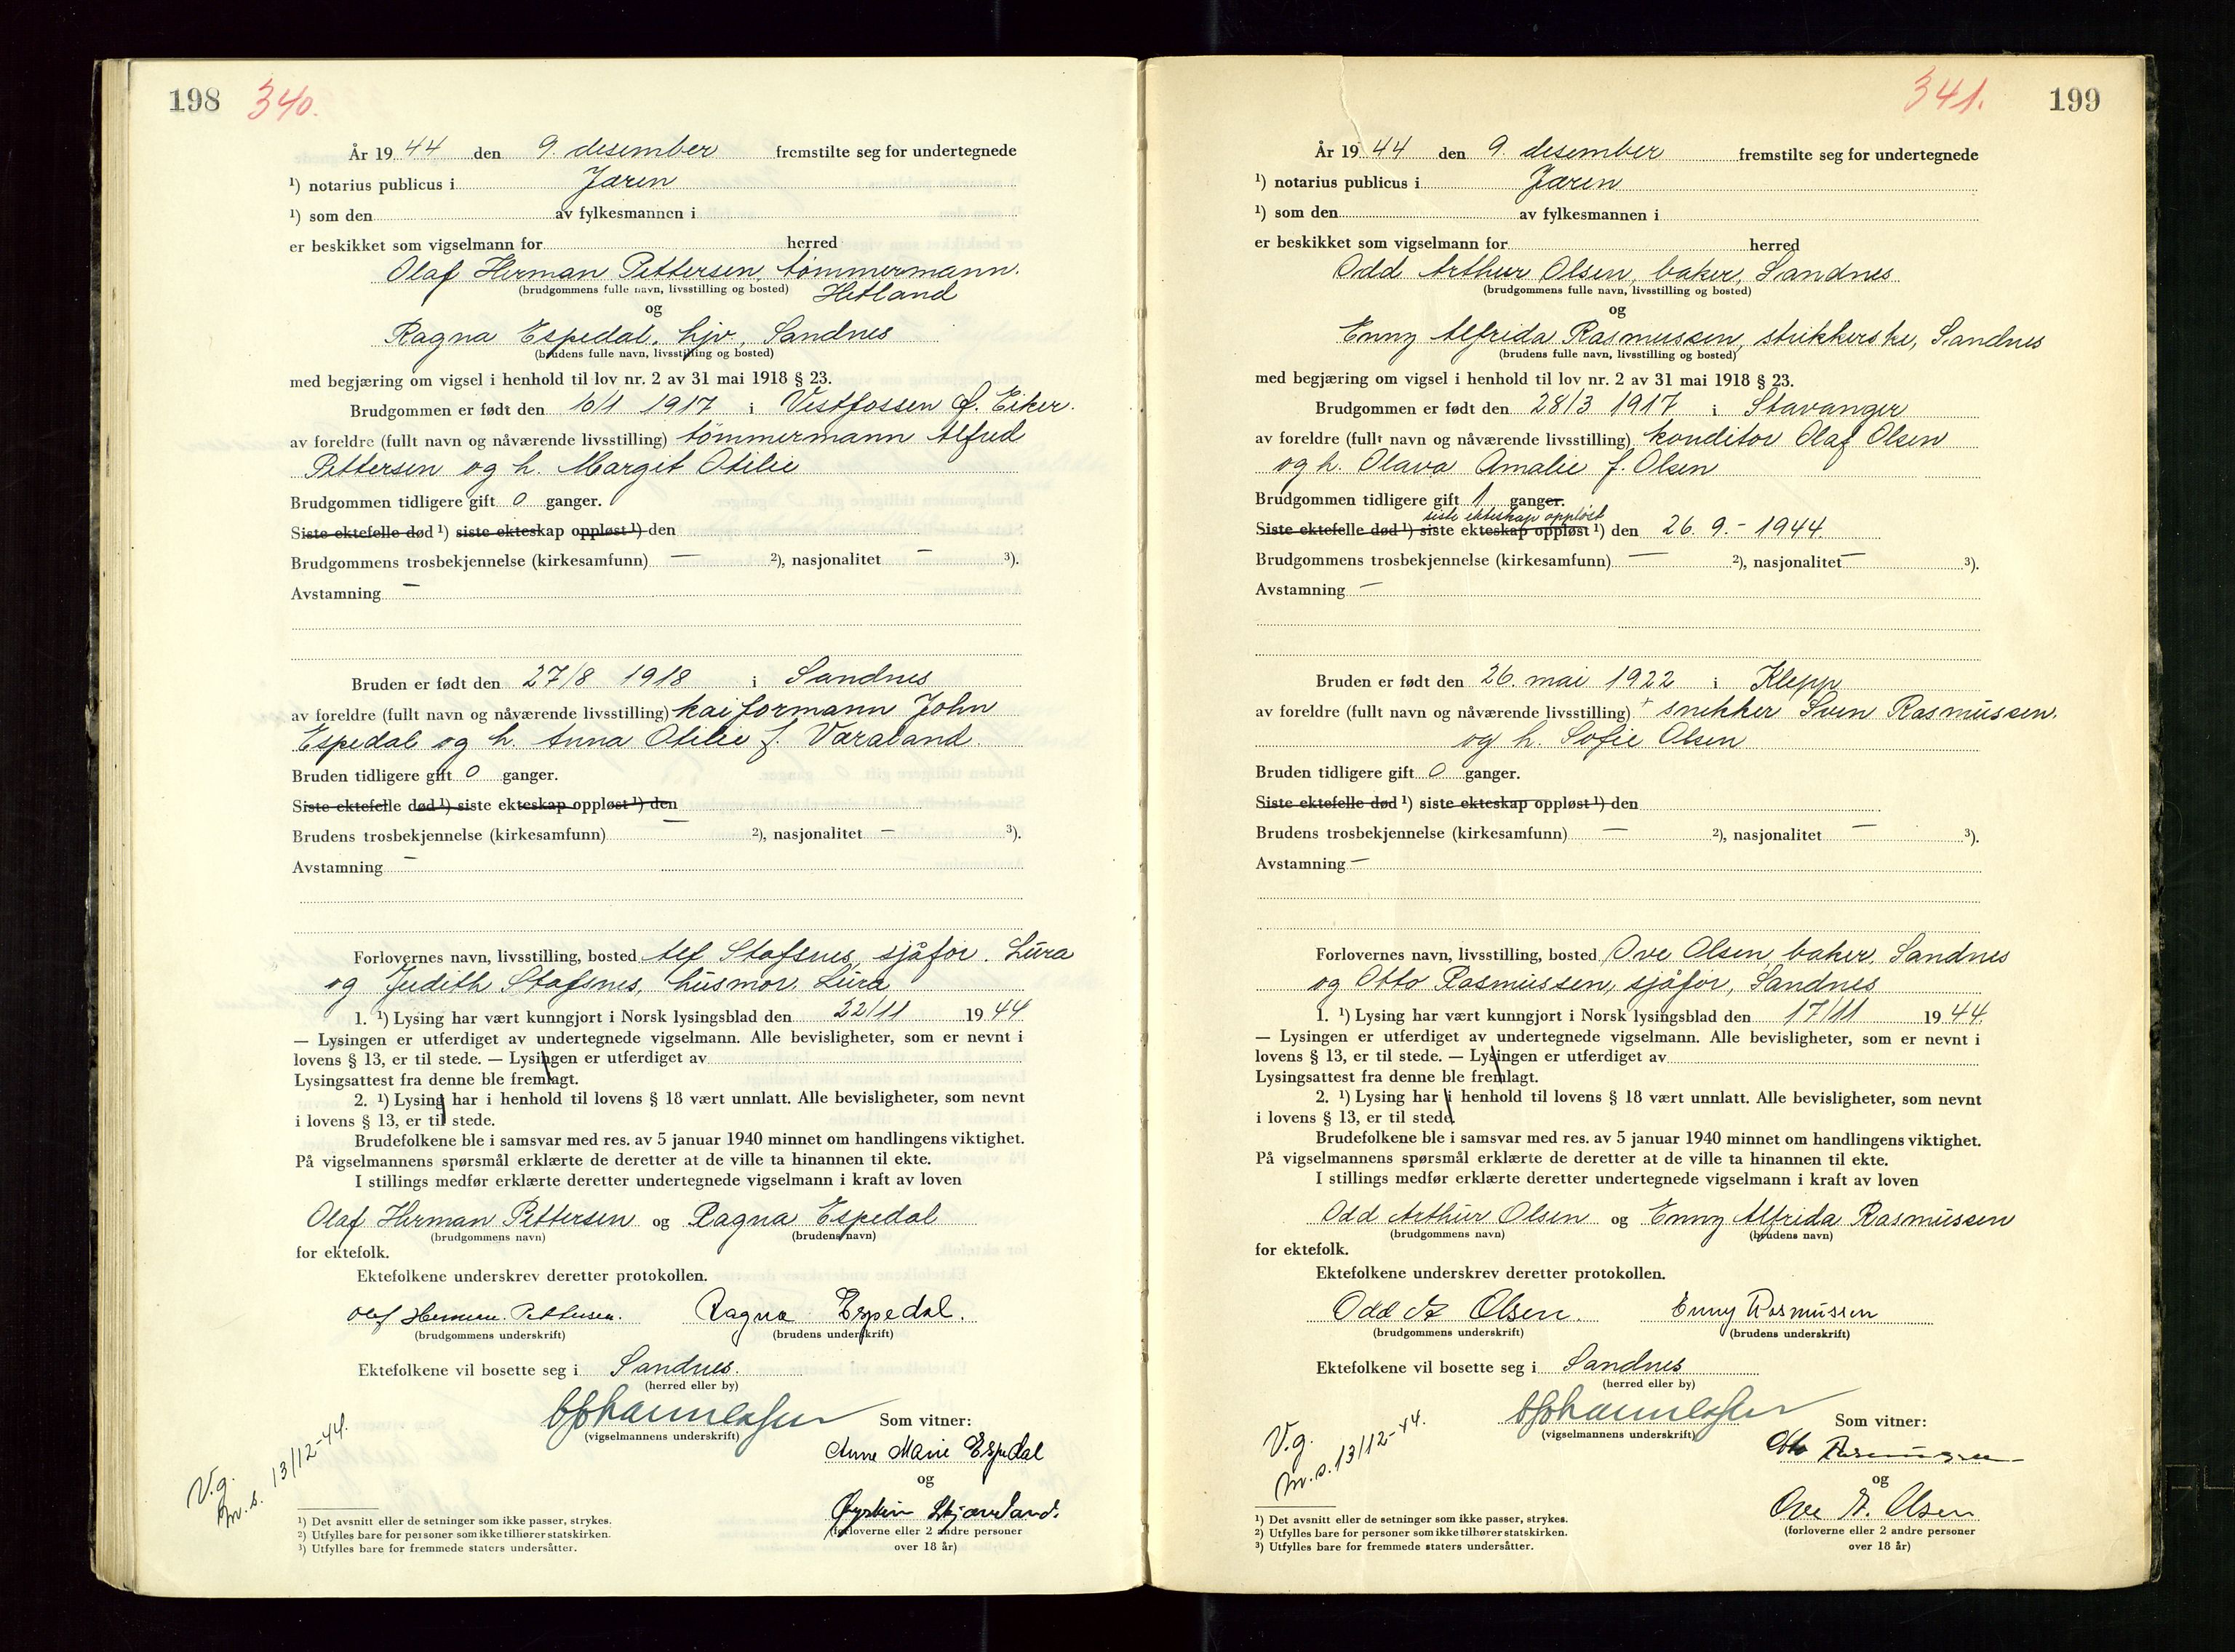 198 340.
År 19 44 den 9. desember fremstilte seg for undertegnede
¹) notarius publicus i Jæren
¹) som den av fylkesmannen i
er beskikket som vigselmann for herred
Olaf Herman Pettersen, tømmermann.
(brudgommens fulle navn, livsstilling og bosted) Hetland
og
Ragna Espedal, hjv., Sandnes
(brudens fulle navn, livsstilling og bosted)
med begjæring om vigsel i henhold til lov nr. 2 av 31 mai 1918 § 23.
Brudgommen er født den 10/1 1917 i Vestfossen Ø. Eiker.
av foreldre (fullt navn og nåværende livsstilling) tømmermann Alfred
Pettersen og h. Margit Otilie
Brudgommen tidligere gift 0 ganger.
Siste ektefelle død ¹) siste ekteskap oppløst ¹) den
Brudgommens trosbekjennelse (kirkesamfunn) — ²), nasjonalitet — ³).
Avstamning —
Bruden er født den 27/8 1918 i Sandnes
av foreldre (fullt navn og nåværende livsstilling) kaiformann John
Espedal og h. Anna Otilie f. Varaland.
Bruden tidligere gift 0 ganger.
Siste ektefelle død ¹) siste ekteskap oppløst ¹) den
Brudens trosbekjennelse (kirkesamfunn) — ²), nasjonalitet — ³).
Avstamning —
Forlovernes navn, livsstilling, bosted Alf Stafsnes, sjåfør. Lura
og Judith Stafsnes, husmor, Lura
1. ¹) Lysing har vært kunngjort i Norsk lysingsblad den 22/11 19 44
— Lysingen er utferdiget av undertegnede vigselmann. Alle bevisligheter, som er nevnt i
lovens § 13, er til stede. — Lysingen er utferdiget av
Lysingsattest fra denne ble fremlagt.
2. ¹) Lysing har i henhold til lovens § 18 vært unnlatt. Alle bevisligheter, som nevnt
i lovens § 13, er til stede.
Brudefolkene ble i samsvar med res. av 5 januar 1940 minnet om handlingens viktighet.
På vigselmannens spørsmål erklærte de deretter at de ville ta hinannen til ekte.
I stillings medfør erklærte deretter undertegnede vigselmann i kraft av loven
Olaf Herman Pettersen og Ragna Espedal
(brudgommens navn) (brudens navn)
for ektefolk.
Ektefolkene underskrev deretter protokollen.
Olaf Herman Pettersen. Ragna Espedal.
(brudgommens underskrift) (brudens underskrift)
Ektefolkene vil bosette seg i Sandnes.
(herred eller by)
Som vitner:
(vigselmannens underskrift)
Anne Marie Espedal
og
Øystein Skjæveland.
(forloverne eller 2 andre personer
over 18 år)
V.g.
m.s. 13/12-44.
¹) Det avsnitt eller de setninger som ikke passer, strykes.
²) Utfylles bare for personer som ikke tilhører statskirken.
³) Utfylles bare for fremmede staters undersåtter.
341. 199
År 19 44 den 9. desember fremstilte seg for undertegnede
¹) notarius publicus i Jæren
¹) som den av fylkesmannen i
er beskikket som vigselmann for herred
Odd Arthur Olsen, baker, Sandnes
(brudgommens fulle navn, livsstilling og bosted)
og
Enny Alfrida Rasmussen, strikkerske, Sandnes
(brudens fulle navn, livsstilling og bosted)
med begjæring om vigsel i henhold til lov nr. 2 av 31 mai 1918 § 23.
Brudgommen er født den 28/3 1917 i Stavanger
av foreldre (fullt navn og nåværende livsstilling) konditor Olaf Olsen
og h. Olava Amalie f. Olsen
Brudgommen tidligere gift 1 ganger.
siste ekteskap oppløst
Siste ektefelle død ¹) siste ekteskap oppløst ¹) den 26. 9. - 1944.
Brudgommens trosbekjennelse (kirkesamfunn) — ²), nasjonalitet — ³).
Avstamning —
Bruden er født den 26. mai 1922 i Klepp
av foreldre (fullt navn og nåværende livsstilling) + snekker Sven Rasmussen.
og h. Sofie Olsen
Bruden tidligere gift 0 ganger.
Siste ektefelle død ¹) siste ekteskap oppløst ¹) den
Brudens trosbekjennelse (kirkesamfunn) — ²), nasjonalitet — ³).
Avstamning —
Forlovernes navn, livsstilling, bosted Ove Olsen, baker, Sandnes
og Otto Rasmussen, sjåfør, Sandnes
1. ¹) Lysing har vært kunngjort i Norsk lysingsblad den 17/11 19 44.
— Lysingen er utferdiget av undertegnede vigselmann. Alle bevisligheter, som er nevnt i
lovens § 13, er til stede. — Lysingen er utferdiget av
Lysingsattest fra denne ble fremlagt.
2. ¹) Lysing har i henhold til lovens § 18 vært unnlatt. Alle bevisligheter, som nevnt
i lovens § 13, er til stede.
Brudefolkene ble i samsvar med res. av 5 januar 1940 minnet om handlingens viktighet.
På vigselmannens spørsmål erklærte de deretter at de ville ta hinannen til ekte.
I stillings medfør erklærte deretter undertegnede vigselmann i kraft av loven
Odd Arthur Olsen og Enny Alfrida Rasmussen
(brudgommens navn) (brudens navn)
for ektefolk.
Ektefolkene underskrev deretter protokollen.
Odd A Olsen. Enny Rasmussen
(brudgommens underskrift) (brudens underskrift)
Ektefolkene vil bosette seg i Sandnes
(herred eller by)
Som vitner:
(vigselmannens underskrift)
Otto Rasmussen
og
Ove A. Olsen
(forloverne eller 2 andre personer
over 18 år)
V.g.
m.s. 13/12-44.
¹) Det avsnitt eller de setninger som ikke passer, strykes.
²) Utfylles bare for personer som ikke tilhører statskirken.
³) Utfylles bare for fremmede staters undersåtter.